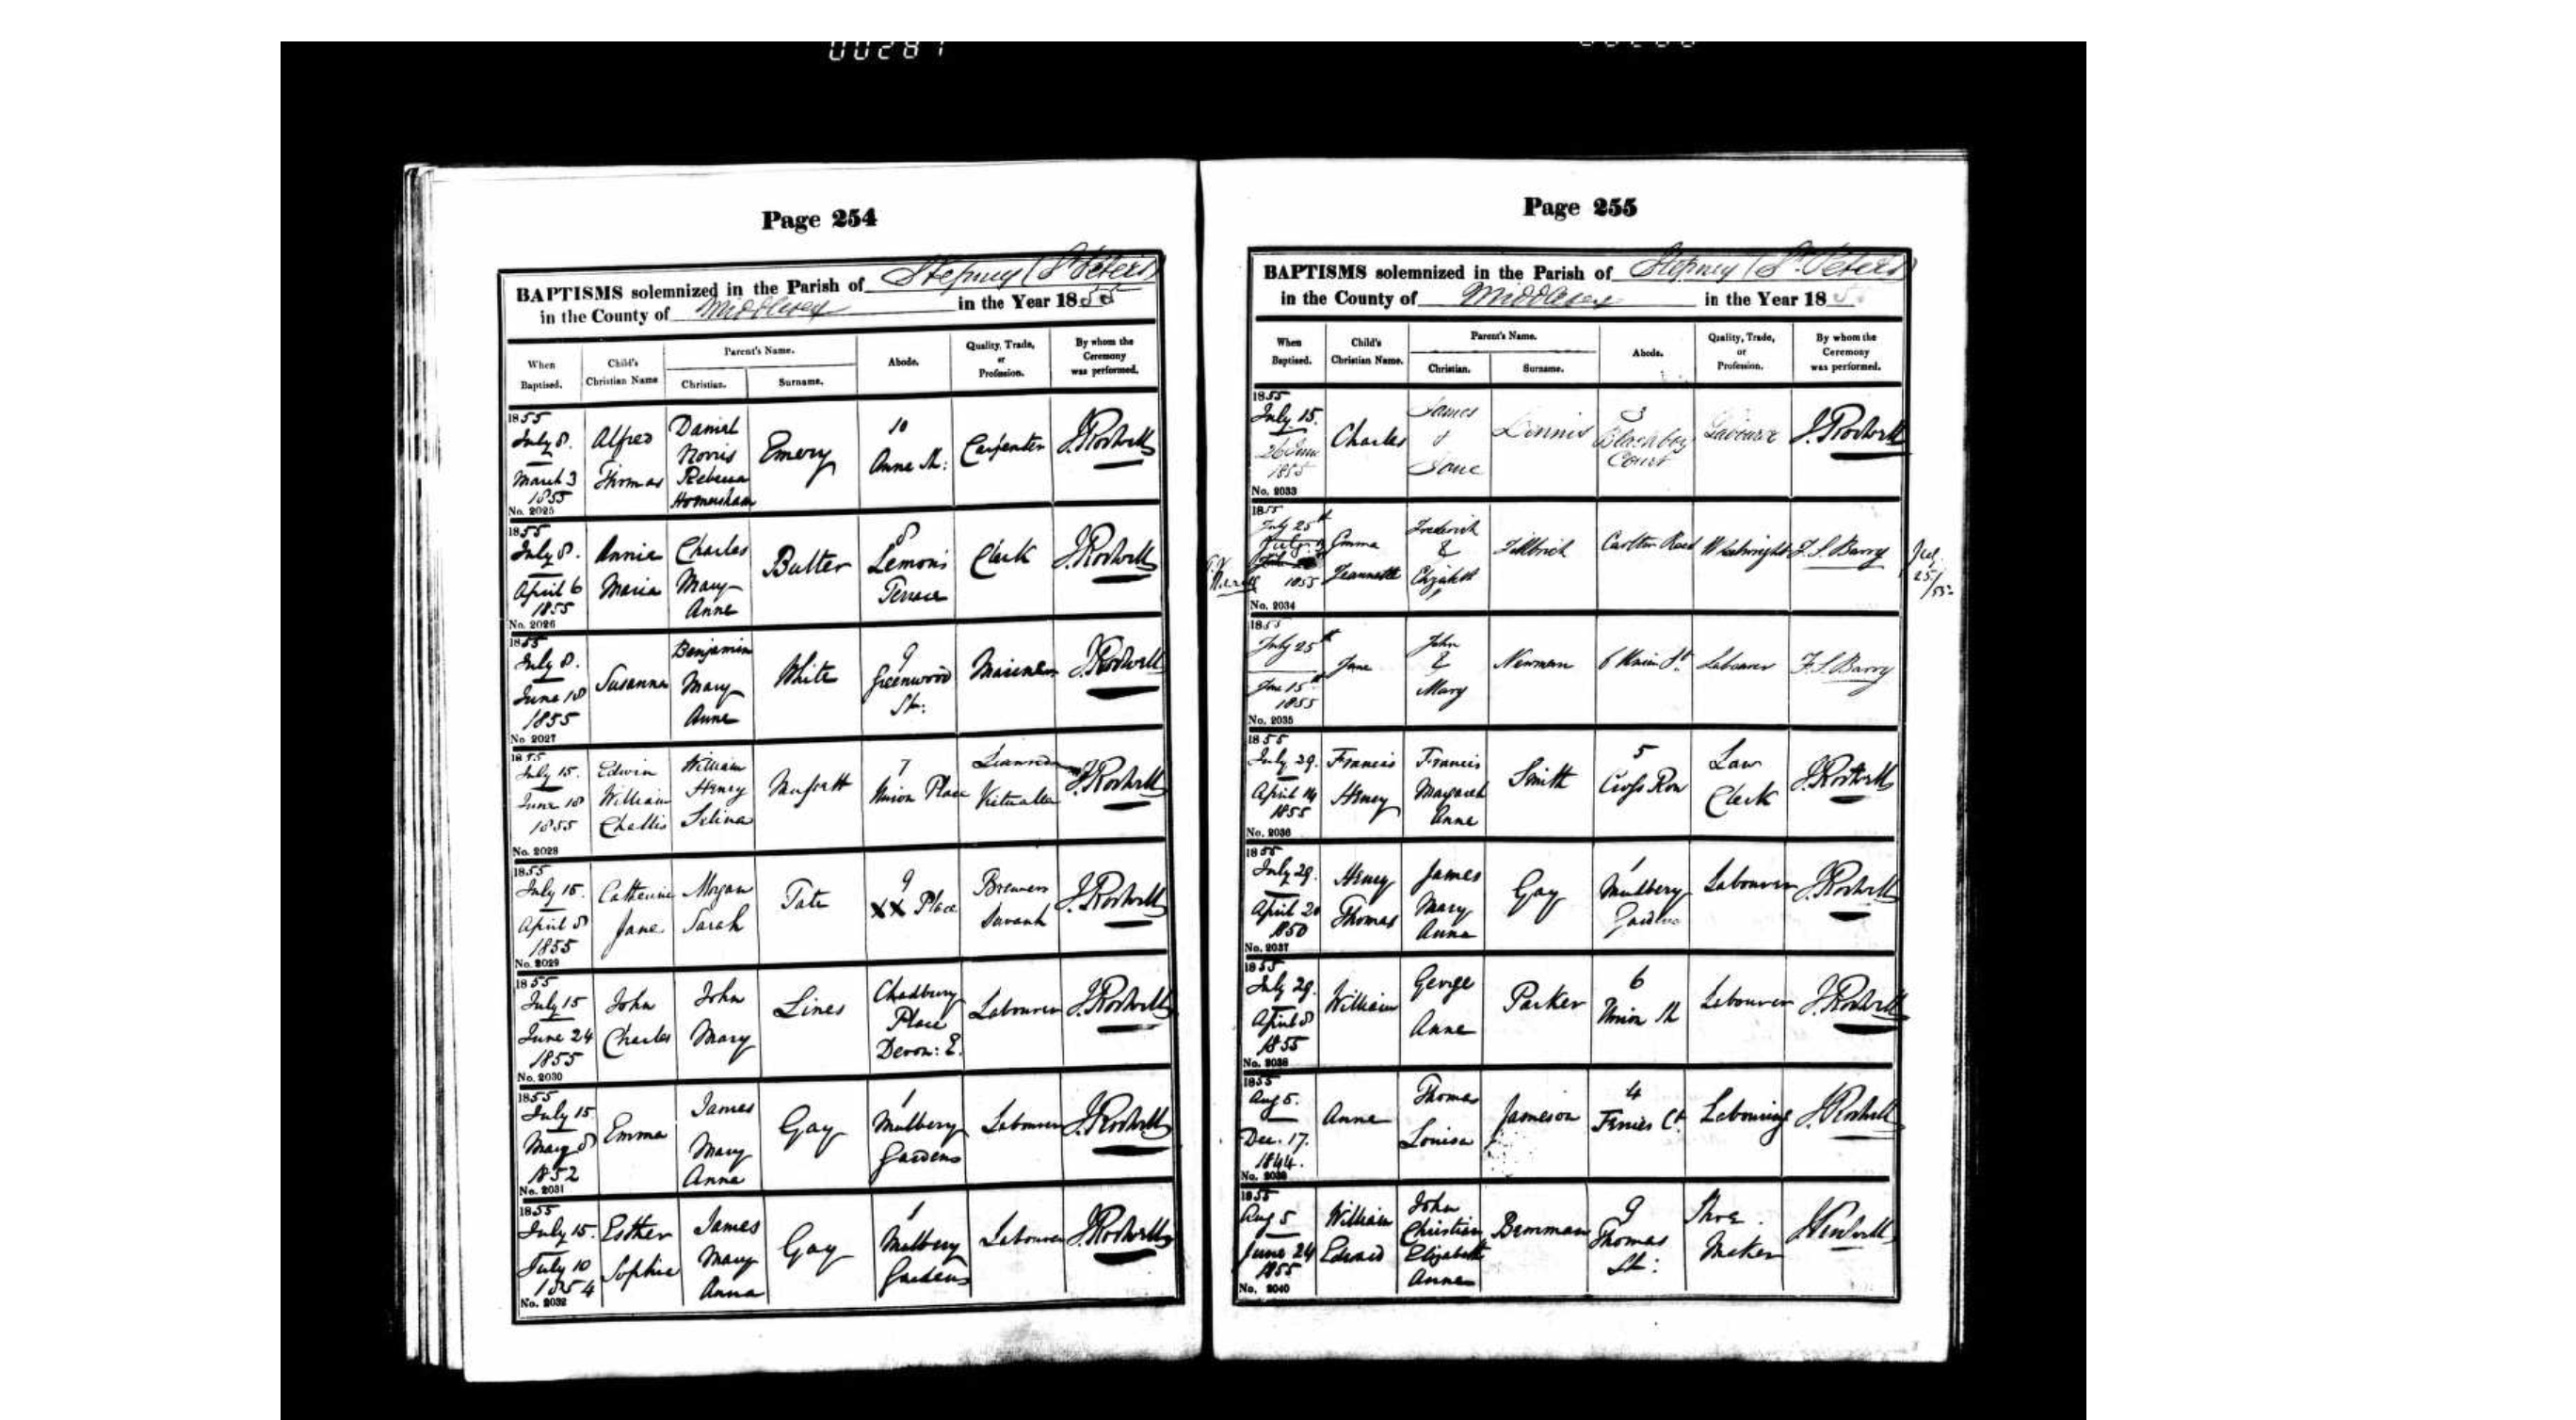 00287
Page 254
BAPTISMS solemnized in the Parish of Stepney (St Peters)
in the County of Middlesex in the Year 1855
When Baptised. Child's Christian Name Parent's Name. Christian. Surname. Abode. Quality, Trade, or Profession. By whom the Ceremony was performed.
1855 July 8. March 3 1855 No. 2025 Alfred Thomas Daniel Norris Rebecca Homersham Emery 10 Anne St: Carpenter J. Rodwell
1855 July 8. April 6 1855 No. 2026 Annie Maria Charles Mary Anne Butter 8 Lemon's Terrace Clerk J. Rodwell
1855 July 8. June 18 1855 No 2027 Susanna Benjamin Mary Anne White 9 Greenwood St: Mariner J. Rodwell
1855 July 15. June 18 1855 No. 2028 Edwin William Challis William Henry Selina 7 Union Place Victualler J. Rodwell
1855 July 15. April 8 1855 No. 2029 Catherine Jane Morgan Sarah Tate 9 XX Place Brewers Servant J. Rodwell
1855 July 15 June 24 1855 No. 2030 John Charles John Mary Lines Chadbury Place Devon: E. Labourer J. Rodwell
1855 July 15 May 8 1852 No. 2031 Emma James Mary Anna Gay 1 Mulbery Gardens Labourer J. Rodwell
1855 July 15. July 10 1854 No. 2032 Esther Sophia James Mary Anna Gay 1 Mulbery Gardens Labourer J. Rodwell
Page 255
BAPTISMS solemnized in the Parish of Stepney (St. Peters)
in the County of Middlesex in the Year 185
When Baptised. Child's Christian Name. Parent's Name. Christian. Surname. Abode. Quality, Trade, or Profession. By whom the Ceremony was performed.
1855 July 15. 26 June 1855 No. 2033 Charles James & Jane Dennis 3 Blackboy Court Labourer J. Rodwell
1855 July 25th 1855 No. 2034 Emma Jeannette Frederick & Elizabeth Carlton Road Wheelwright F. S. Barry
25/55
1855 July 25th June 15th 1855 No. 2035 Jane John & Mary Newman 6 Union St Labourer F. S. Barry
1855 July 29. April 14 1855 No. 2036 Francis Henry Francis Margaret Anne Smith 5 Cross Row Law Clerk J. Rodwell
1855 July 29. April 20 1850 No. 2037 Henry Thomas James Mary Anna Gay 1 Mulbery Gardens Labourer J. Rodwell
1855 July 29. April 8 1855 No. 2038 William George Anne Parker 6 Union St Labourer J. Rodwell
1855 Aug 5. Dec. 17. 1844. No. 2039 Anne Thomas Louisa Jameson 4 Ct. Labouring J. Rodwell
1855 Aug 5 June 24 1855 No. 2040 William Edward John Christian Elizabeth Anne 9 Thomas St: Shoe Maker J. Rodwell